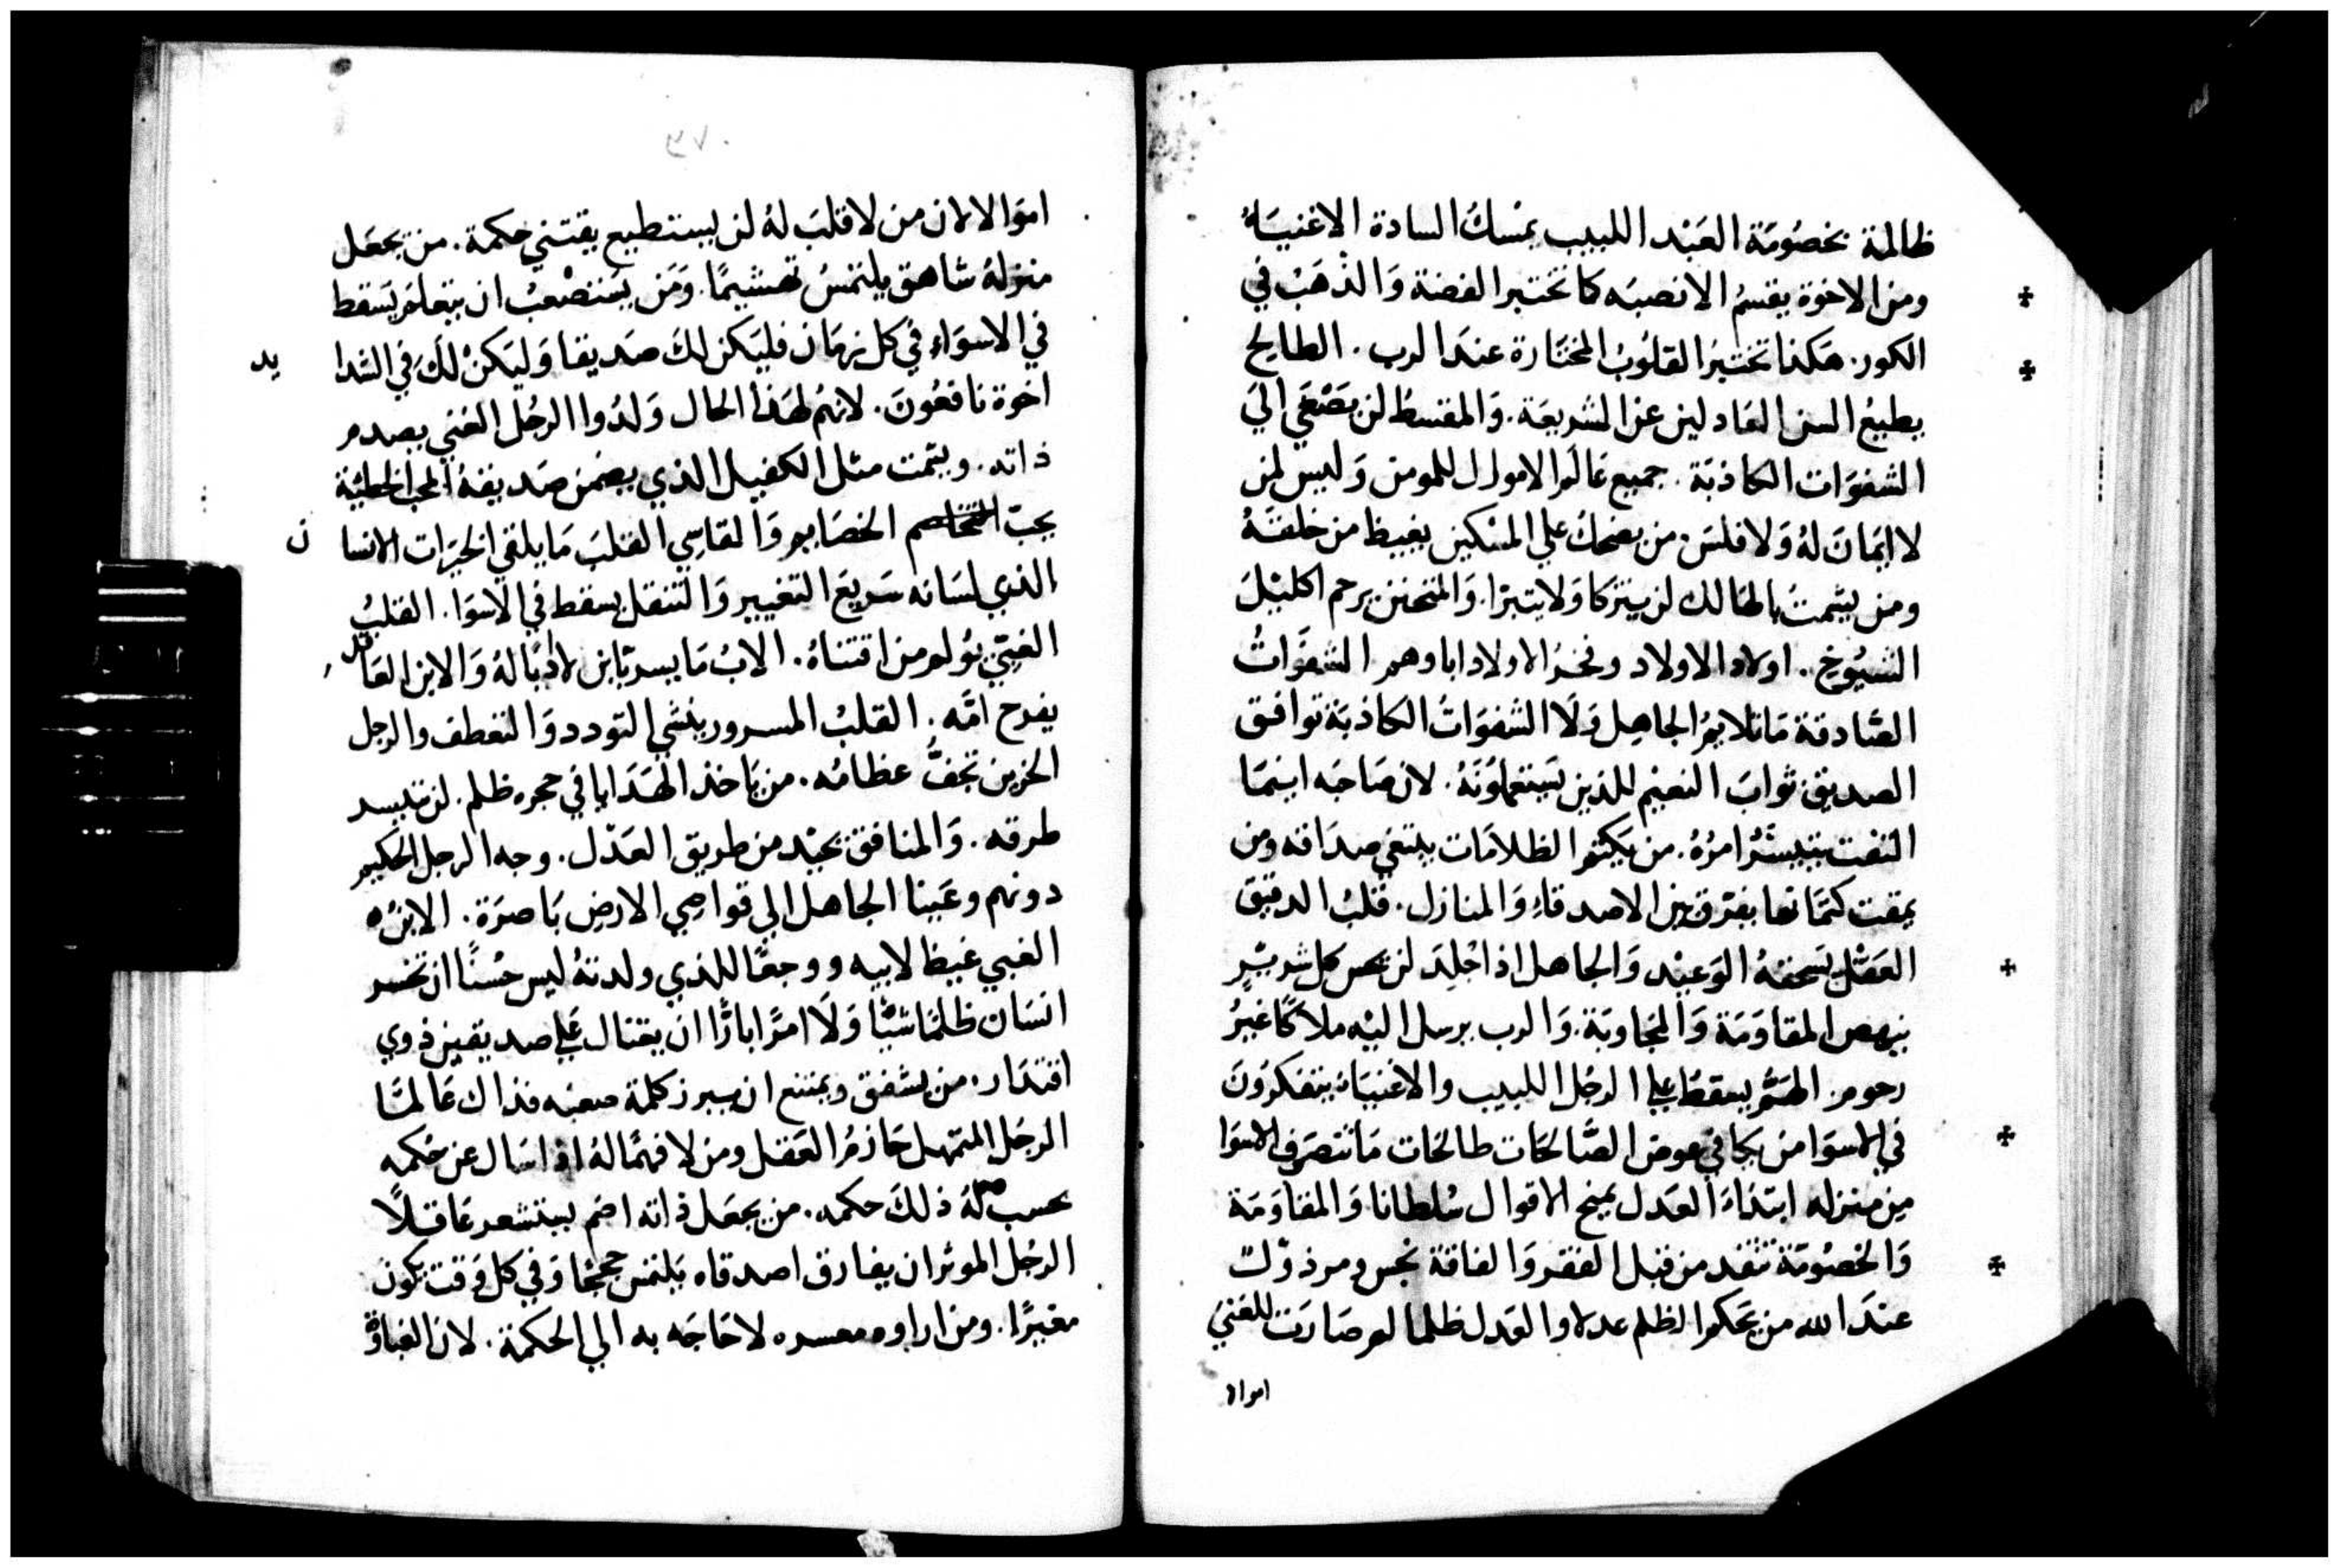 ظالمة بخصُومَة العَبْد اللبيب يمْسكُ السادة الاغنيَاءُ
ومن الاخوة يقسمُ الانصبَه كما تختبر الفضة وَالذْهَبْ في
الكور. هَكذا تختبرُ القلوُبُ المختَارة عندَ الرب. الطالح
يطيعُ السن العَادلين عن الشريعَة. وَالمقسطُ لن يَصْغَي اليَ
الشفوَات الكاذبَة. جميع عَالم الاموال للمومن وَليس لمن
لا ايمَانَ لهُ وَلا فلسَ. من يضحكُ علي المسْكين يغيظ من خلقهُ
ومن يشمتُ بالهَالك لن يتزكا وَلا يتبرا. وَالمتحنن يرحم اكليْلَ
الشيُوخِ. اولاد الاولاد وفخرُ الاولاد اباوهم الشفوَاتُ
الصَّادقة مَا تلايمُ الجاهِل وَلَا الشفوَاتُ الكاذبَة توافق
الصديق ثوابَ النعيْم للذين يَستعملوُنَهُ. لان صَاحبَه اينمَا
التفت يتيسَّرُ امرُهُ. من يَكتم الظلامَات يبتغي صدَاقه ومن
يمقت كتمَانها يفرّق بين الاصدقاءِ وَالمنازل. قلبُ الدقيق
العَقْل يَسحقهُ الوَعيْد وَالجاهل اذا جُلِدَ لن يحس كل شريرٍ
ينهض المقاوَمَة وَالمجَاوبَة. وَالرب يرسل اليْه ملاكًا غيرُ
رحوم. الهَمُّ يسقطُ علي الرجُل اللبيب والاغنيَاءُ يتفكرُونَ
في الاسوَا من يكافي عوض الصَّالحَات طالحَات مَا تنصَرف الاسوَا
مِن منزله ابتدَاءَ العَدل يمنح الاقوال سُلطانا وَالمقاوَمَة
وَالخصُومَة تتقد من قبل الفقر وَالفاقة نجس ومرذوُلٌ
عندَ الله من يَحكم الظلم عدلا والعَدل ظلما لم صَارَت للغنيَ
اموالا

اموَالا لان من لا قلبَ لهُ لن يستطيع يقتني حكمة. من يجعَل
منزلهُ شاهق يلتمسُ تهشيمًا. وَمَن يَستصْعبُ ان يتعلم يَسقط
في الاسوَاءِ في كل زمَان فليَكن لكَ صَديقا وَليَكنْ لكَ في الشدا
يد
اخوة نافعُونَ. لانهُم لهَذا الحال وَلدُوا الرجُل الغني يصدم
ذاته. ويشمت مثل الكفيل الذي يضمَن صَديقهُ المحب الخطيَّة
يحبّ الخصَايم وَالقاسِي القلبَ مَا يلقي الخيرَات الانسا
ن
الذي لسَانه سَريعَ التغيير وَالتنقل يسقط في الاسوَا. القلبُ
الغبيّ يوُلم من اقتناهُ. الابُ مَا يسر بابن لا ادَبًا لهُ وَالابن العَاقل
يفرح امَّه. القلبُ المسرور ينشي التودد وَالتعطف والرجل
الحزين تجفُّ عظامُه. من يَاخذ الهَدَايا في حجره ظلم. لن تتيسر
طرقه. وَالمنافق يحيْد من طريق العَدْل. وجه الرجل الحكيم
دونهم وعَينا الجاهل الي قواصِي الارض بَاصرَة. الابنُ
الغبي غيظ لابيه ووجعًا للذي ولدتهُ ليس حُسنًا ان تخسر
انسَان ظلمًا شيًّا وَلَا امرًا بارًّا ان يقتال علي صديقين ذوي
اقتدَار. من يشفق ويمتنع ان يبرز كلمة صعبه فذاك عَالمًا
الرجَل المتمهل حَازمُ العَقل ومن لا فهمًا لهُ اذا سَال عن حُكمه
يحسب لهُ ذلكَ حكمه. من يجعَل ذاته اصَم يستشعر عَاقلًا
الرجُل الموثر ان يفارق اصدقاه يَلتمس حججًا وَفي كل وَقت يكون
معيرًا. ومن لا حَاجَه به الي الحكمة. لان الغباوَة